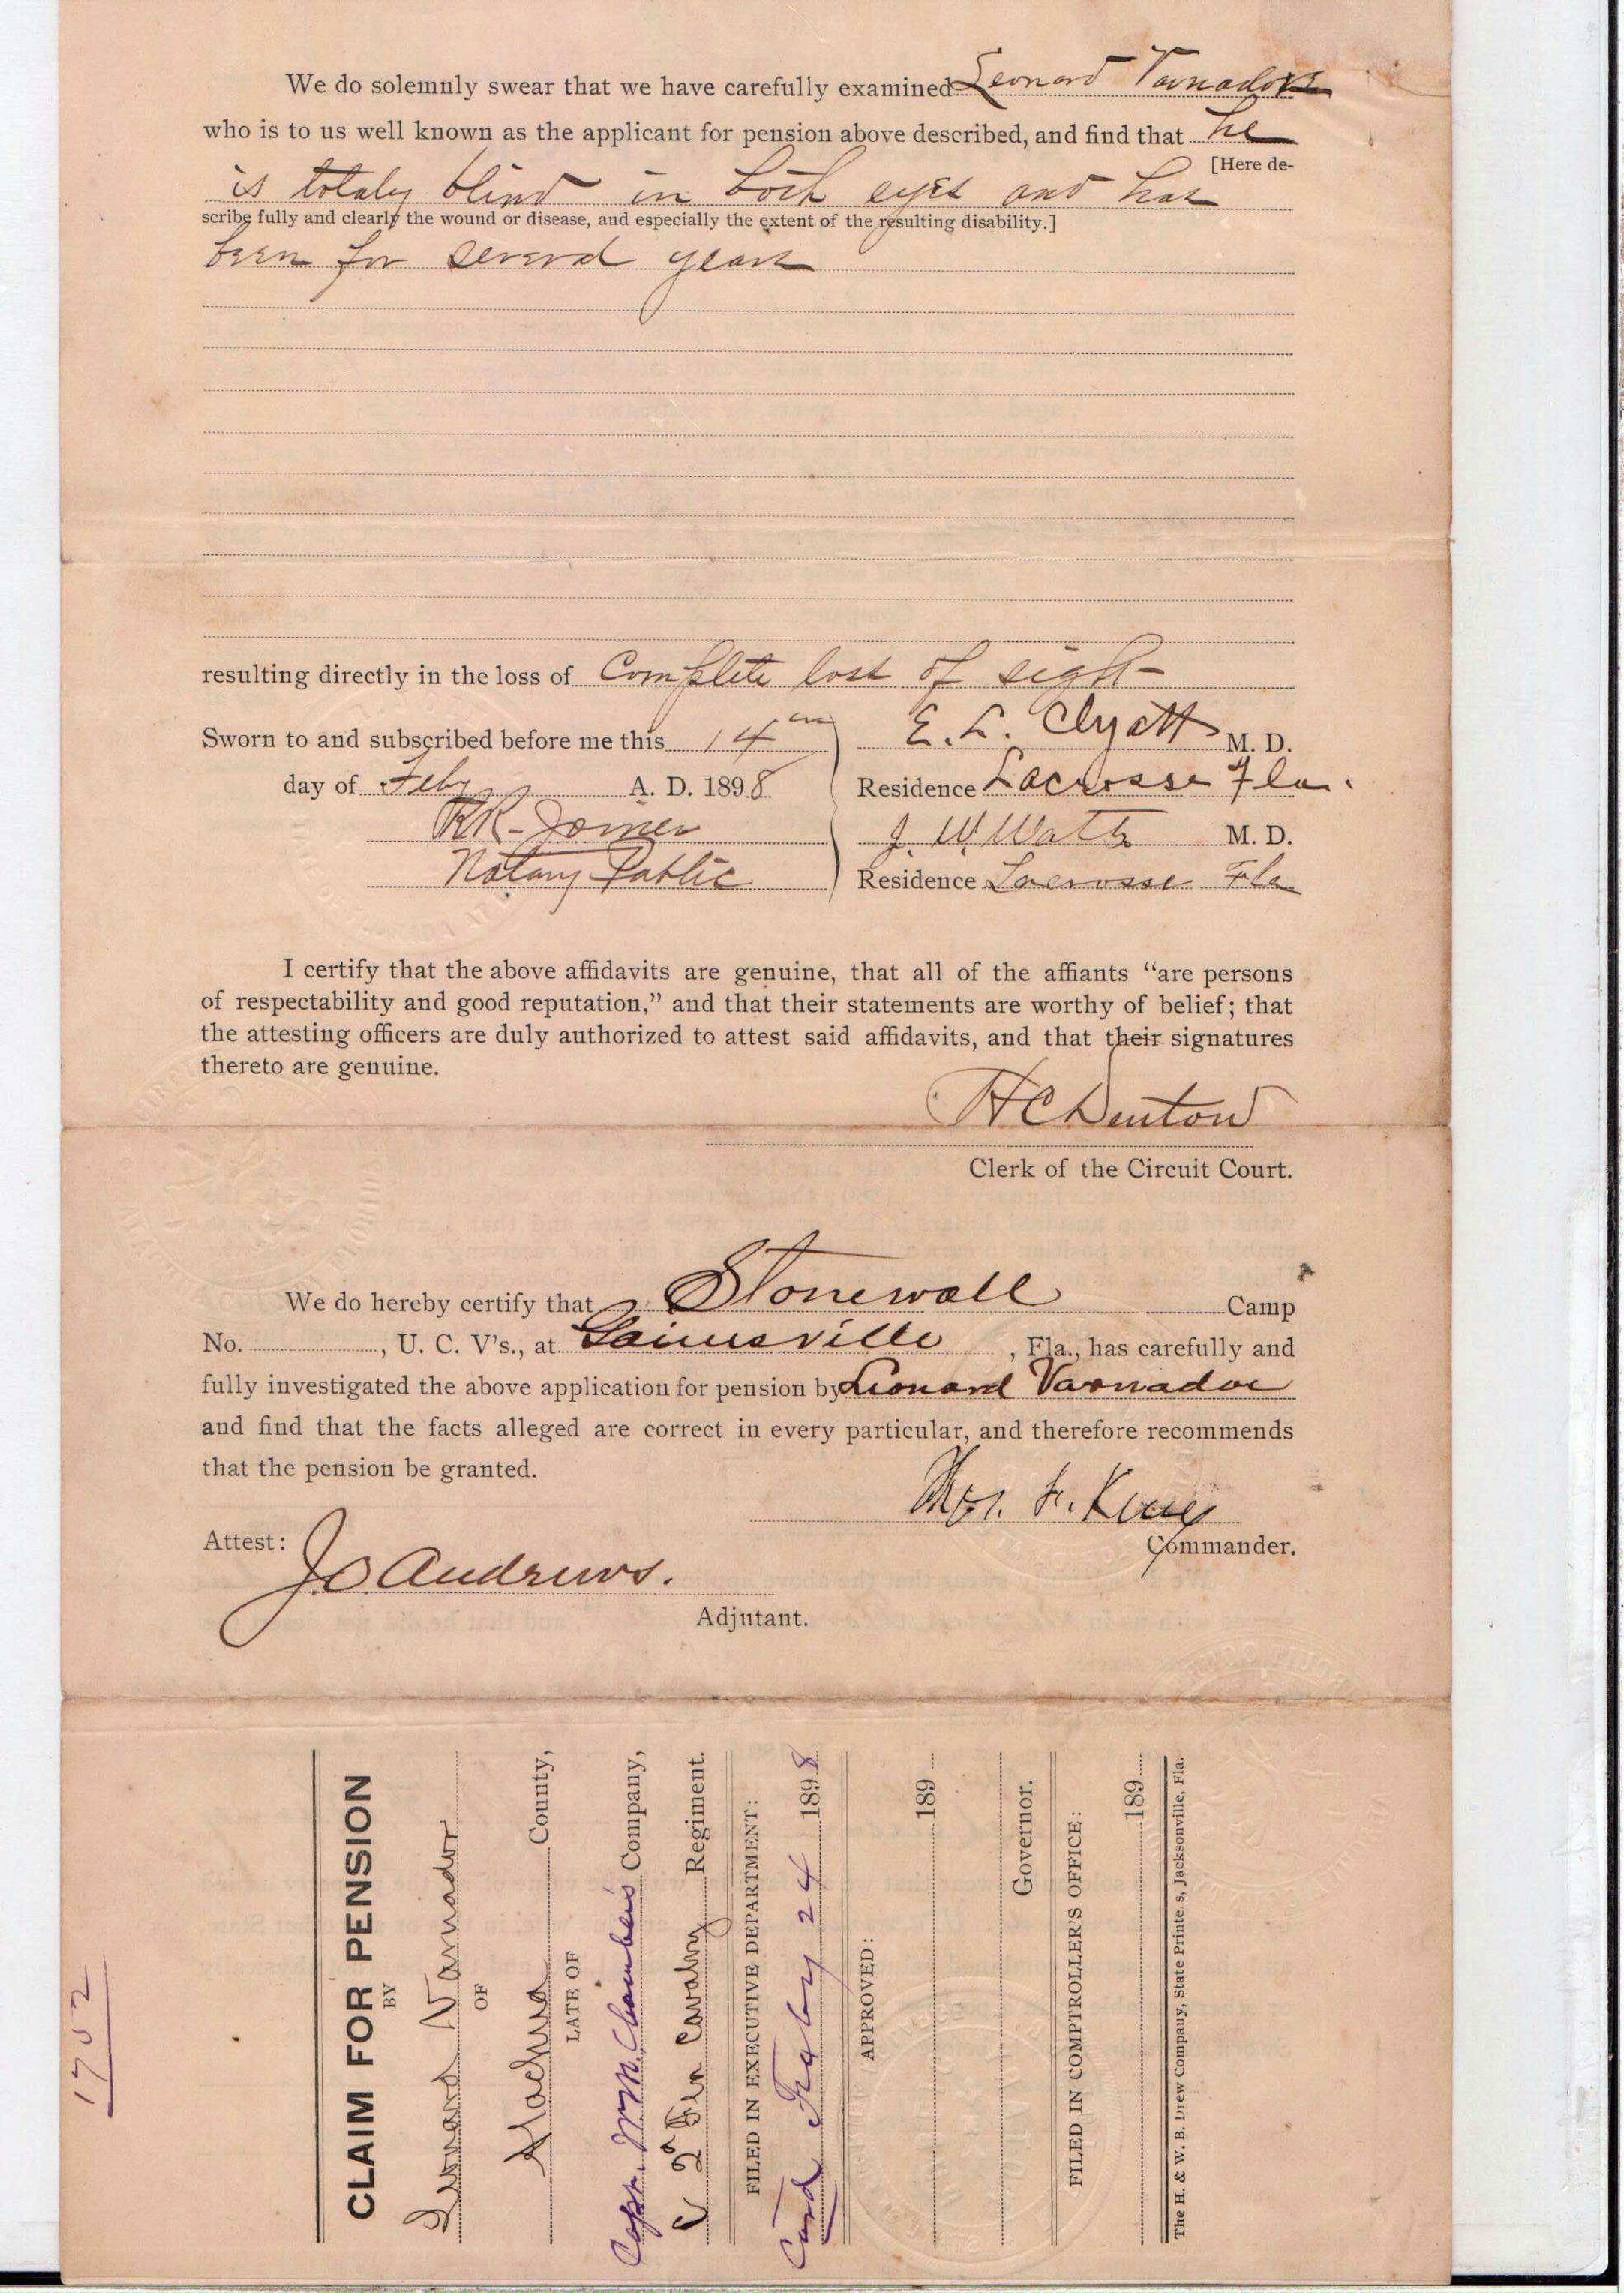 We do solemnly swear that we have carefully examined Leonard Varnadore
who is to us well known as the applicant for pension above described, and find that he
[Here de-
is totaly blind in both eyes and has
scribe fully and clearly the wound or disease, and especially the extent of the resulting disability.]
been for several years
resulting directly in the loss of Complete lost of sight
Sworn to and subscribed before me this 14th
E. L. Clyatt M. D.
day of Feby A. D. 1898
Residence Lacrosse Fla.
RR Joiner
J. W. Watts M. D.
Notary Public
Residence Lacrosse Fla
I certify that the above affidavits are genuine, that all of the affiants “are persons
of respectability and good reputation,” and that their statements are worthy of belief; that
the attesting officers are duly authorized to attest said affidavits, and that their signatures
thereto are genuine.
H C Denton
Clerk of the Circuit Court.
We do hereby certify that Stonewall Camp
No. , U. C. V's., at Gainesville , Fla., has carefully and
fully investigated the above application for pension by Leonard Varnadoe
and find that the facts alleged are correct in every particular, and therefore recommends
that the pension be granted.
Thos. F. King
Commander.
Attest:
JO Andrews.
Adjutant.
1702
CLAIM FOR PENSION
BY
Leonard Varnador
OF
Alachua County,
LATE OF
Capt. Wm. Chambers Company,
C 2d Fla Cavalry Regiment.
FILED IN EXECUTIVE DEPARTMENT:
Card Feby 24 1898
APPROVED:
189
Governor.
FILED IN COMPTROLLER'S OFFICE:
189
The H. & W. B. Drew Company, State Printers, Jacksonville, Fla.